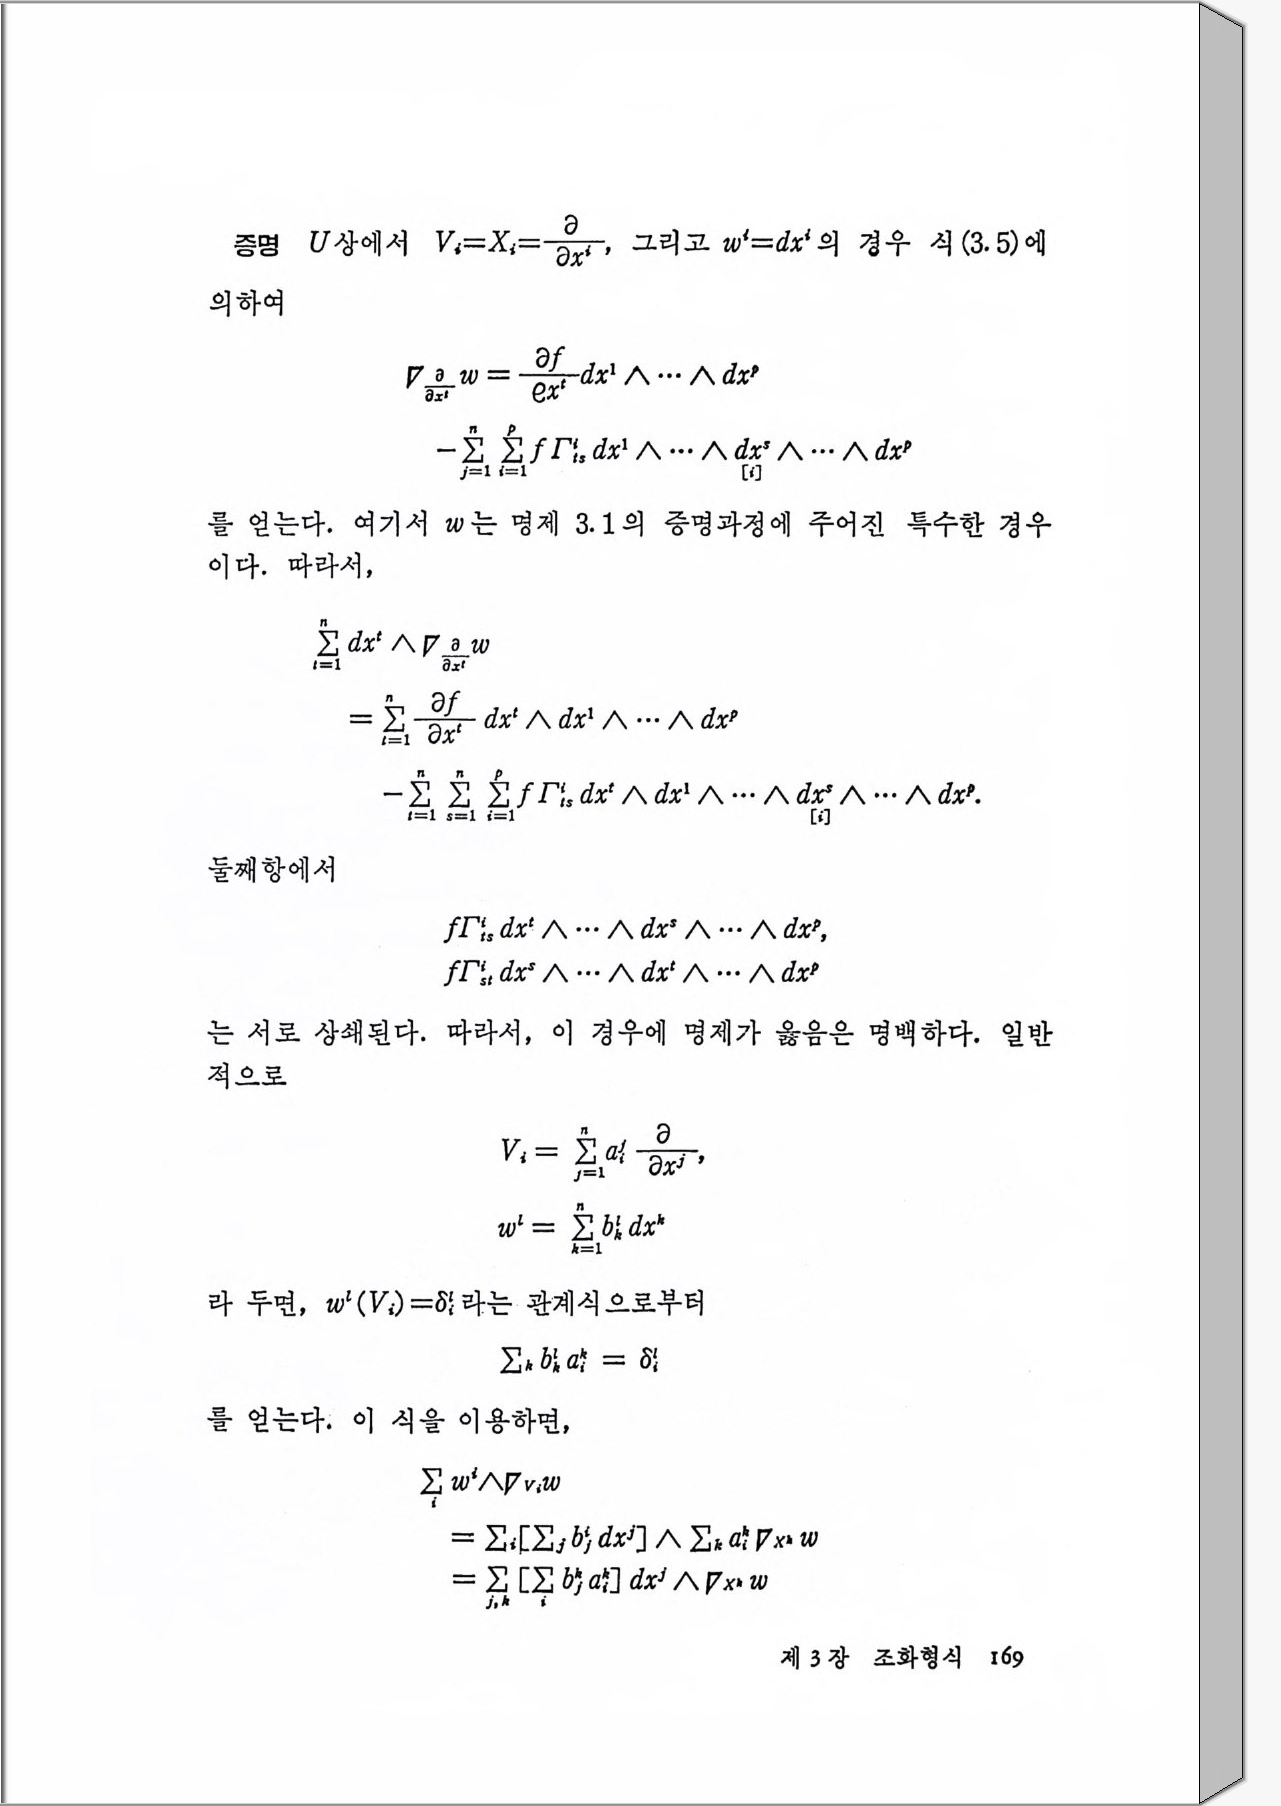 증명 U상에서 V_i=X_i=∂/∂x^i, 그리고 w^i=dx^i의 경우 식(3.5)에
의하여
∇_{∂/∂x^t} w = ∂f/∂x^t dx^1 ∧ ··· ∧ dx^p
−∑_{j=1}^{n} ∑_{i=1}^{p} f Γ^i_{ts} dx^1 ∧ ··· ∧ dx^s_{[i]} ∧ ··· ∧ dx^p
를 얻는다. 여기서 w는 명제 3.1의 증명과정에 주어진 특수한 경우
이다. 따라서,
∑_{t=1}^{n} dx^t ∧ ∇_{∂/∂x^t} w
= ∑_{t=1}^{n} ∂f/∂x^t dx^t ∧ dx^1 ∧ ··· ∧ dx^p
−∑_{t=1}^{n} ∑_{s=1}^{n} ∑_{i=1}^{p} f Γ^i_{ts} dx^t ∧ dx^1 ∧ ··· ∧ dx^s_{[i]} ∧ ··· ∧ dx^p.
둘째항에서
fΓ^i_{ts} dx^t ∧ ··· ∧ dx^s ∧ ··· ∧ dx^p,
fΓ^i_{st} dx^s ∧ ··· ∧ dx^t ∧ ··· ∧ dx^p
는 서로 상쇄된다. 따라서, 이 경우에 명제가 옳음은 명백하다. 일반
적으로
V_i = ∑_{j=1}^{n} a^j_i ∂/∂x^j,
w^l = ∑_{k=1}^{n} b^l_k dx^k
라 두면, w^l(V_i)=δ^l_i라는 관계식으로부터
∑_k b^l_k a^k_i = δ^l_i
를 얻는다. 이 식을 이용하면,
∑_i w^i∧∇_{V_i}w
= ∑_i[∑_j b^i_j dx^j] ∧ ∑_k a^k_i ∇_{X^k} w
= ∑_{j,k} [∑_i b^k_j a^k_i] dx^j ∧ ∇_{X^k} w
제 3 장 조화형식 169